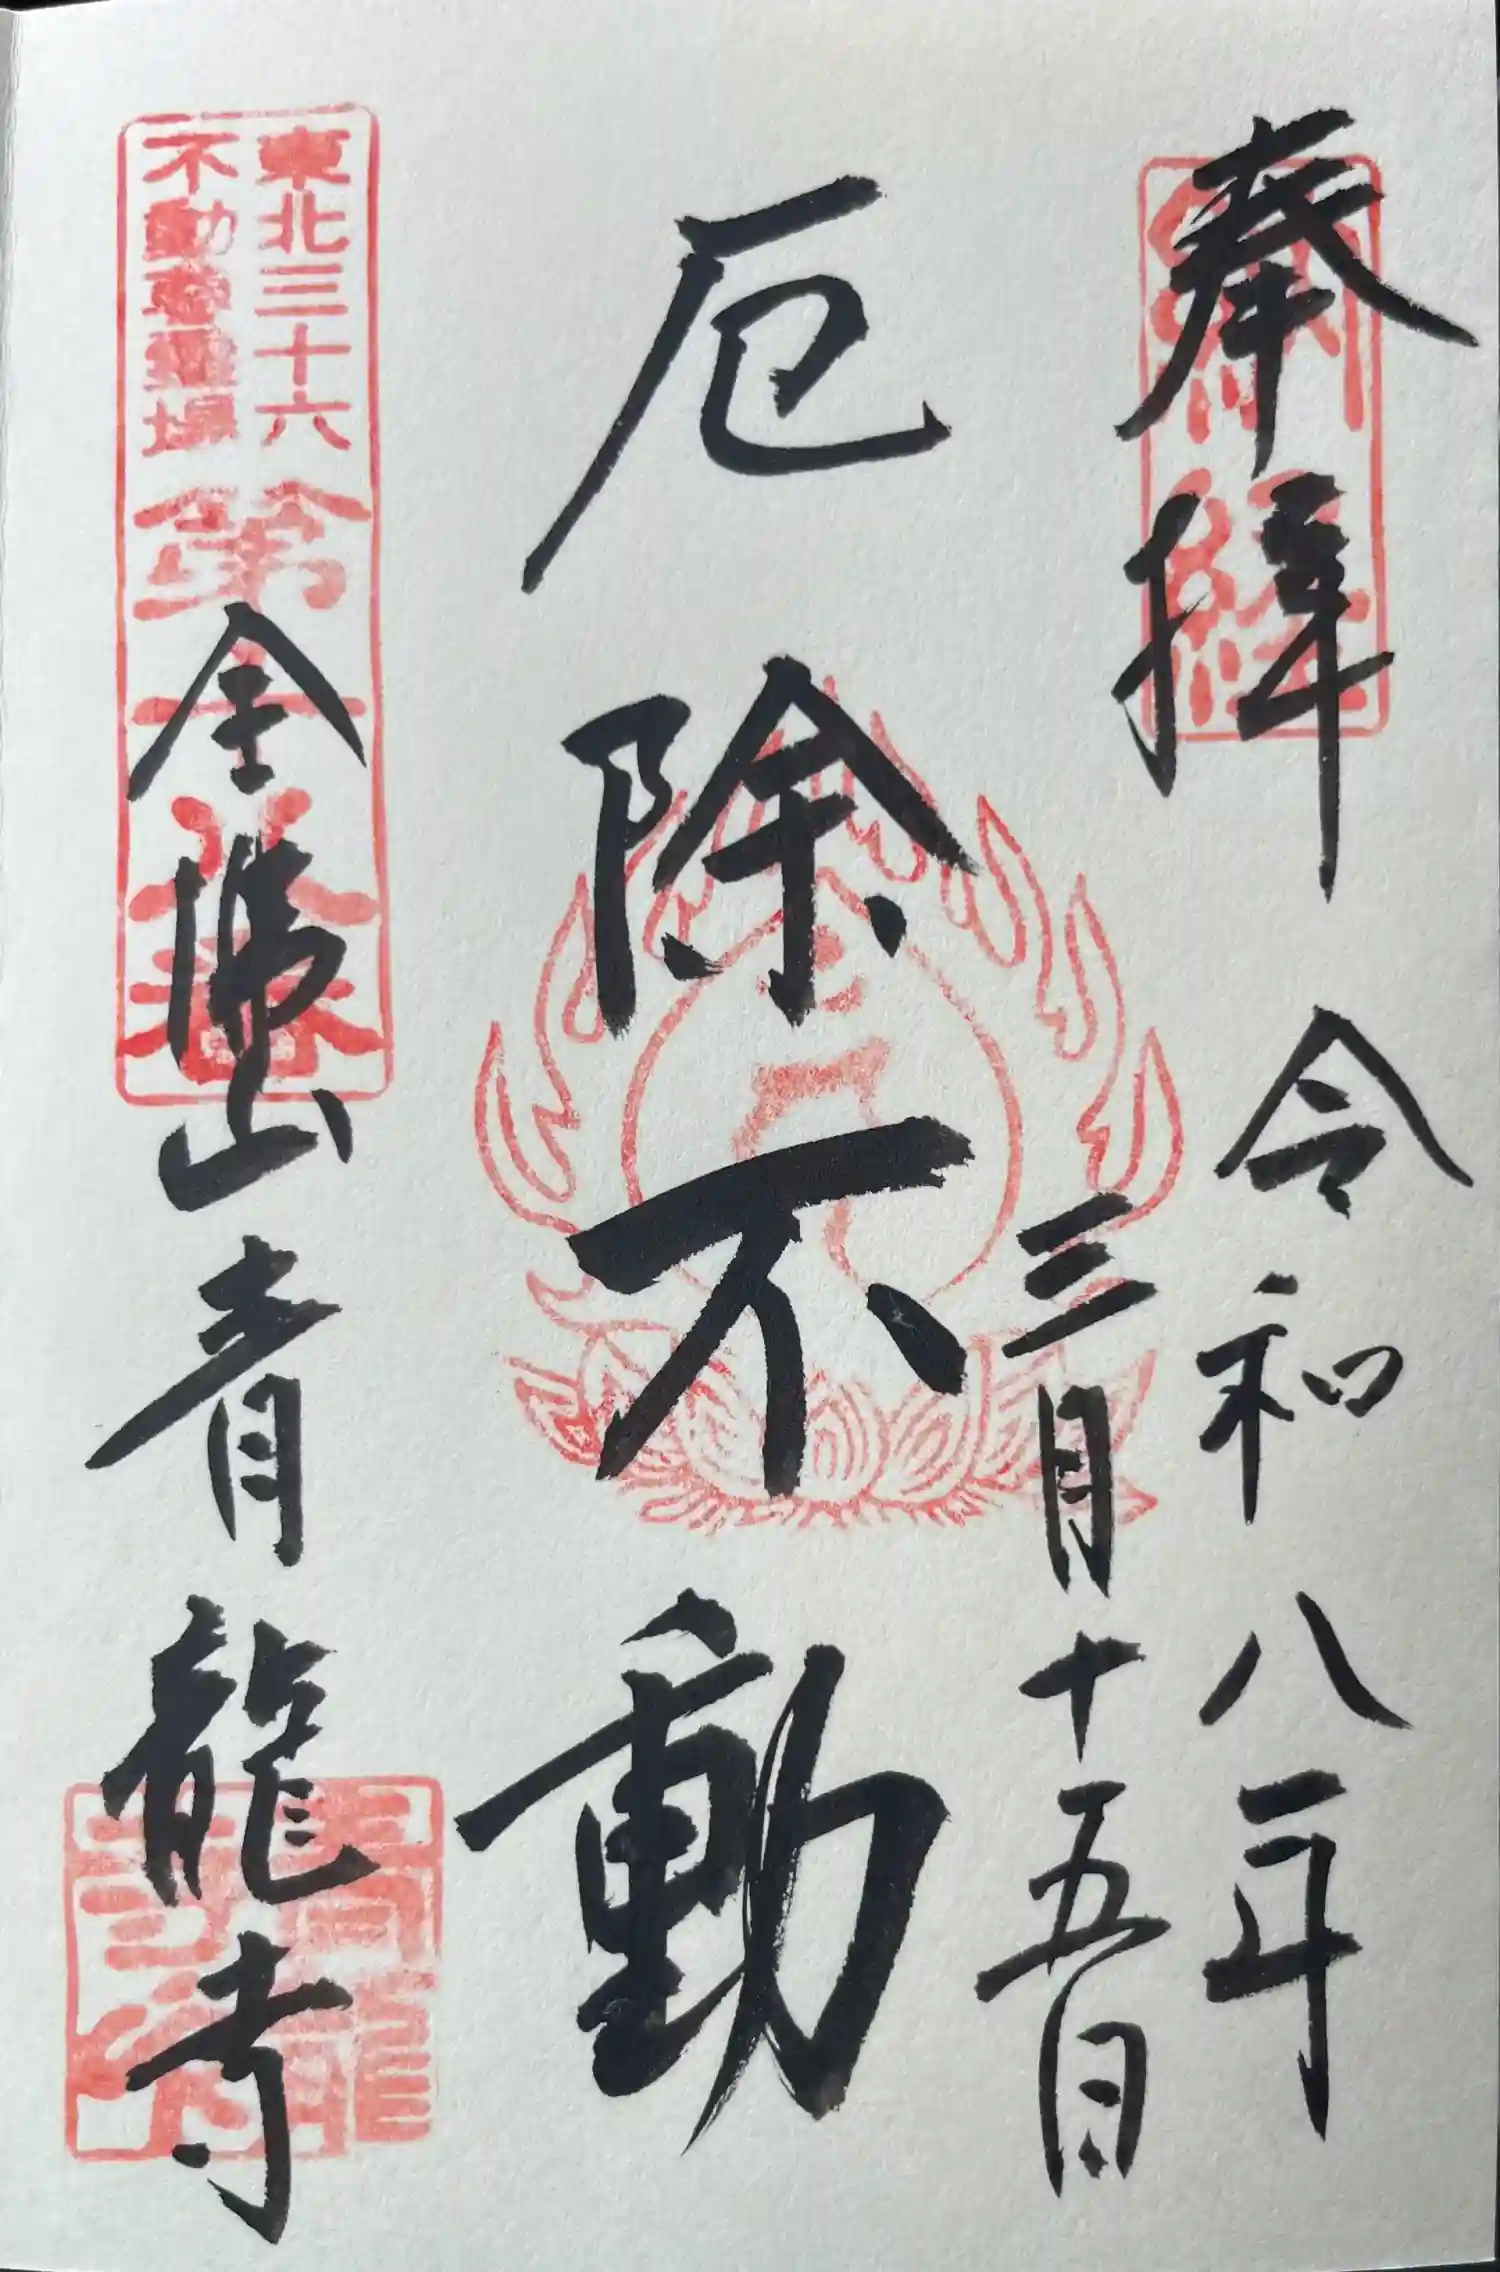 奉拝 令和八年
納経
三月十五日
厄除不動
東北三十六
不動尊霊場
第十八番
全佛山青龍寺